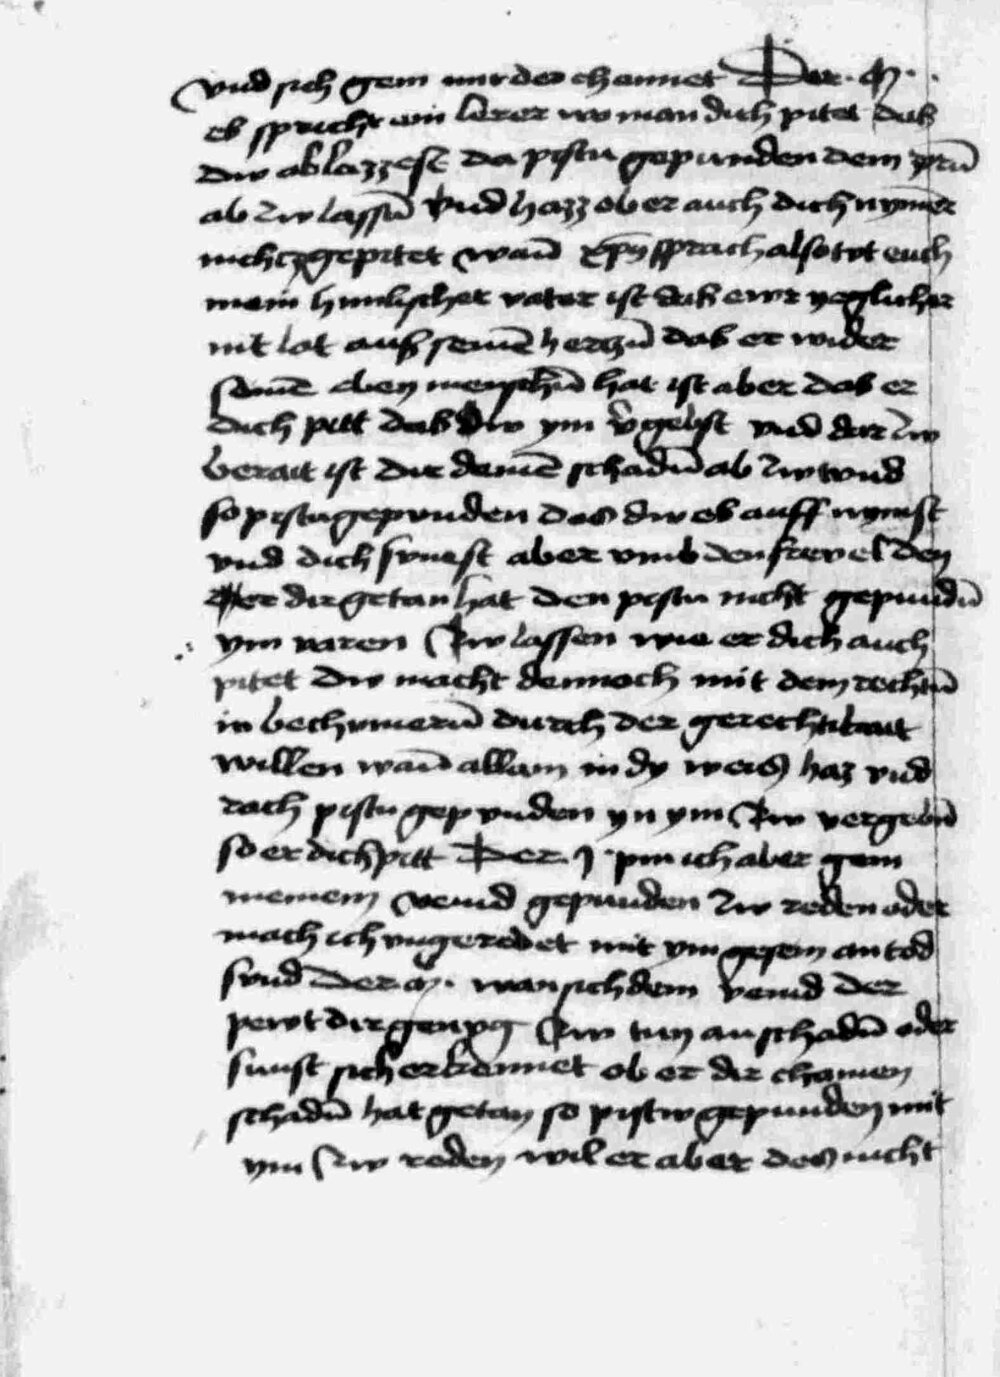 vnd sich gern mit der channet Der · M ·
es spricht ein lerer wo man dich pitet das
dw ablazzest da pistu gepunden dem
ab zw lassn̄ vnd hazz ob er auch dich nym̄er
nichcz gepitet wan̄ xp̄s sprach also tut euch
mein himlischer vater ist das ewr yeglicher
nit lat aus seinē herczn̄ das er wider
seinē eben menschn̄ hat ist aber das er
dich pitt das dw ym v̄gebst vnd dar zw
berait ist dir deinē schadn̄ ab zw tund
so pistu gepunden das dw es auff nymst
vnd dich sunest aber vmb den frevel den
er dir getan hat den pistu nicht gepundn̄
ym varen zw lassen wie er dich auch
pitet Dw macht dennoch mit dem rechtn̄
in bechumern̄ durch der gerechtikait
willen wan̄ allain in dy weis haz vnd
rach pistu gepunden yn ym zw vergebn̄
so er dich pitt Der · J · pin ich aber gern
meinem veind gepunden zw reden oder
mach ich vngeredet mit ym gesein an tod
sund Der · M · wan sich dem veind der
pewt dir genug zw tun an schadn̄ oder
sunst sich erkennet ob er dir chainen
schadn̄ hat getan so pistw gepunden mit
ym zw reden wil er aber des nicht